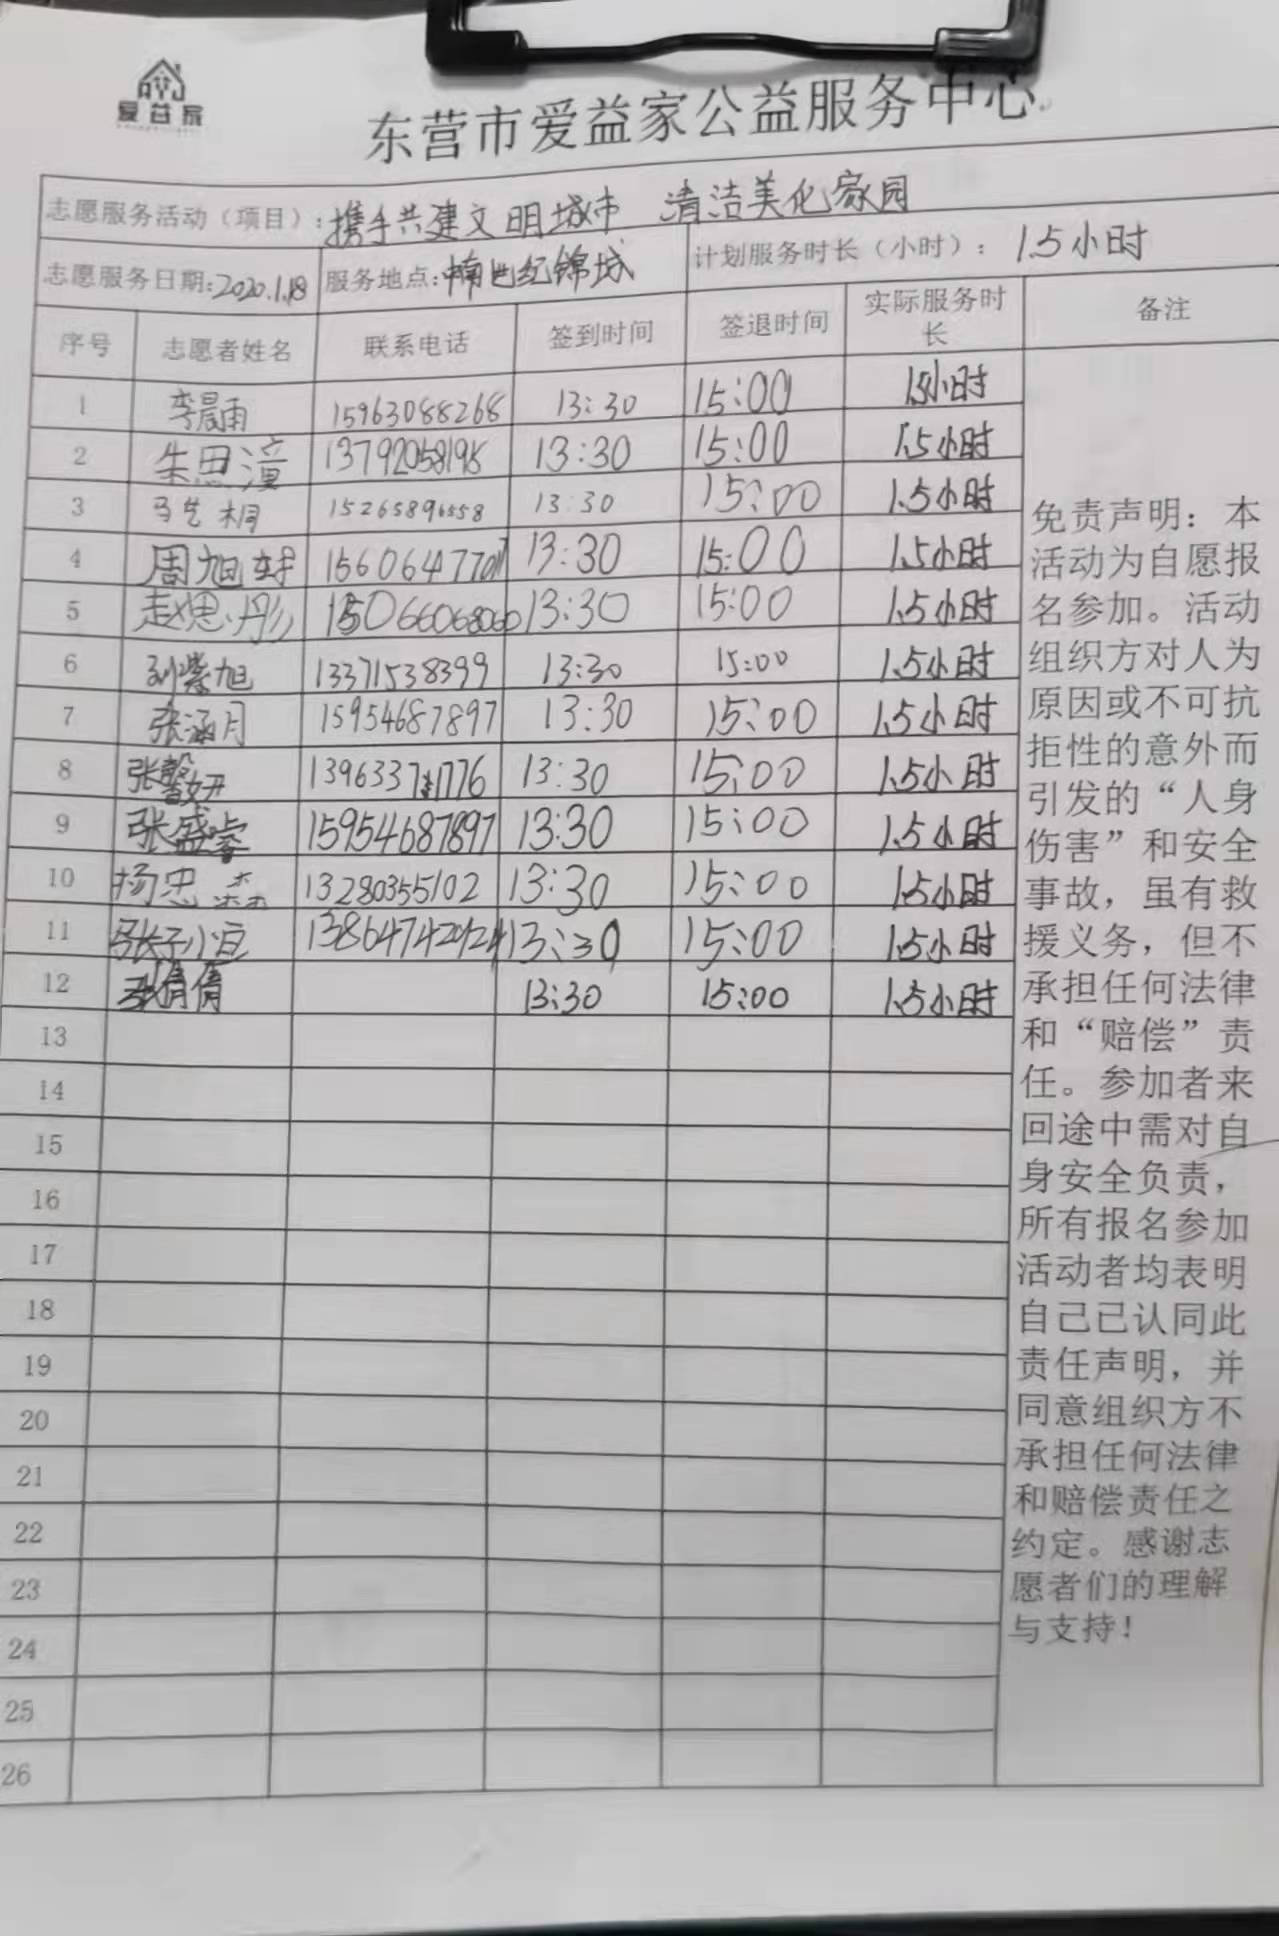 爱益家
东营市爱益家公益服务中心
志愿服务活动（项目）：携手共建文明城市 清洁美化家园
志愿服务日期：2020.1.18 服务地点：中南世纪锦城 计划服务时长（小时）：1.5小时
序号 志愿者姓名 联系电话 签到时间 签退时间 实际服务时长 备注
1 李晨雨 15963088268 13:30 15:00 1.5小时
2 朱思潼 13792058195 13:30 15:00 1.5小时
3 马艺桐 15265896558 13:30 15:00 1.5小时
4 周旭 13:30 15:00 1.5小时
5 赵思彤 15066068060 13:30 15:00 1.5小时
6 刘紫旭 13371538399 13:30 15:00 1.5小时
7 张涵月 15954687897 13:30 15:00 1.5小时
8 张馨妍 13:30 15:00 1.5小时
9 张盛睿 15954687897 13:30 15:00 1.5小时
10 杨忠森 13280355102 13:30 15:00 1.5小时
11 张子恒 13:30 15:00 1.5小时
12 张倩倩 13:30 15:00 1.5小时
13
14
15
16
17
18
19
20
21
22
23
24
25
26
免责声明：本
活动为自愿报
名参加。活动
组织方对人为
原因或不可抗
拒性的意外而
引发的“人身
伤害”和安全
事故，虽有救
援义务，但不
承担任何法律
和“赔偿”责
任。参加者来
回途中需对自
身安全负责，
所有报名参加
活动者均表明
自己已认同此
责任声明，并
同意组织方不
承担任何法律
和赔偿责任之
约定。感谢志
愿者们的理解
与支持！